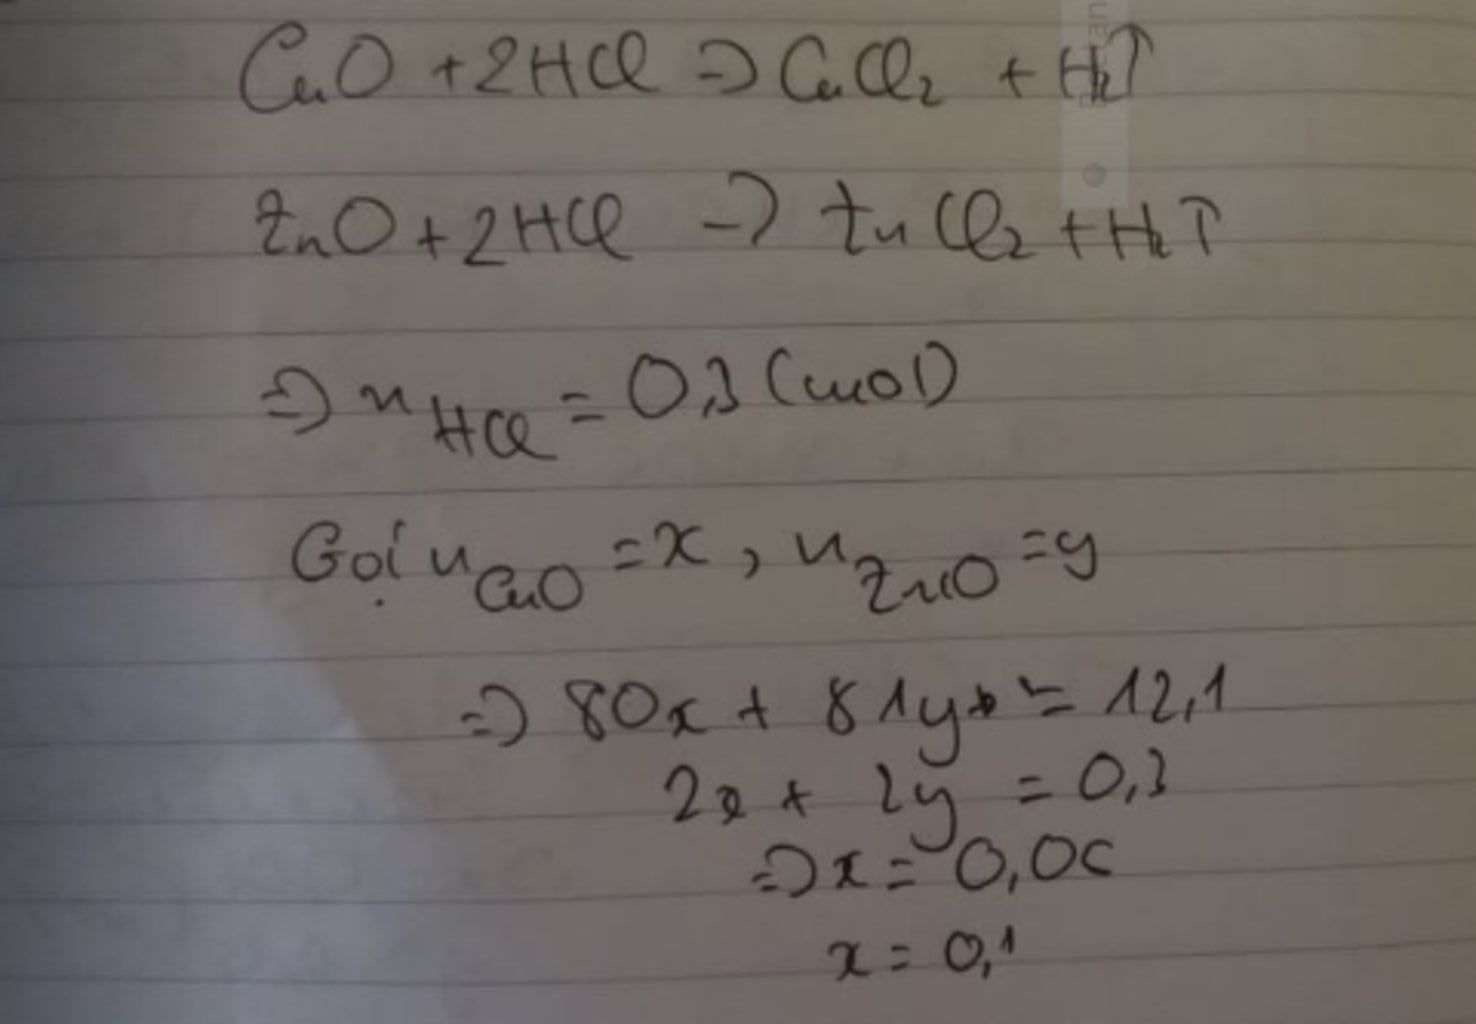 CuO + 2HCl => CuCl₂ + H₂↑
ZnO + 2HCl -> ZnCl₂ + H₂↑
=> n HCl = 0,3 (mol)
Gọi n CuO = x, n ZnO = y
=> 80x + 81y = 12,1
2x + 2y = 0,3
=> x = 0,05
x = 0,1